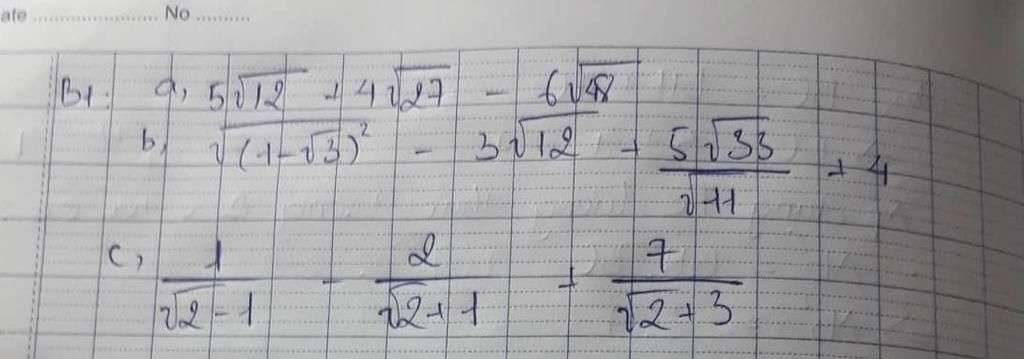 ate ........................ No ..........
B1. a, 5√12 + 4√27 - 6√48
b, √(1-√3)² - 3√12 + 5√33/√11 + 4
c, 1/(√2-1) - 2/(√2+1) + 7/(√2+3)